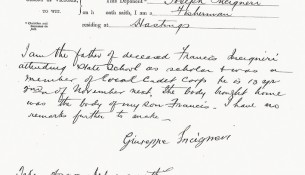 This Deponent Joseph Incigneri
TO WIT.
on h oath saith, I am a Fisherman
residing at Hastings
I am the father of deceased Francis Incigneri
attending State School as scholar & was a
member of Local Cadet Corp. he is 13 yrs
of November next, the body brought home
was the body of my son Francis. I have no
remarks further to make.
Giuseppe Incigneri